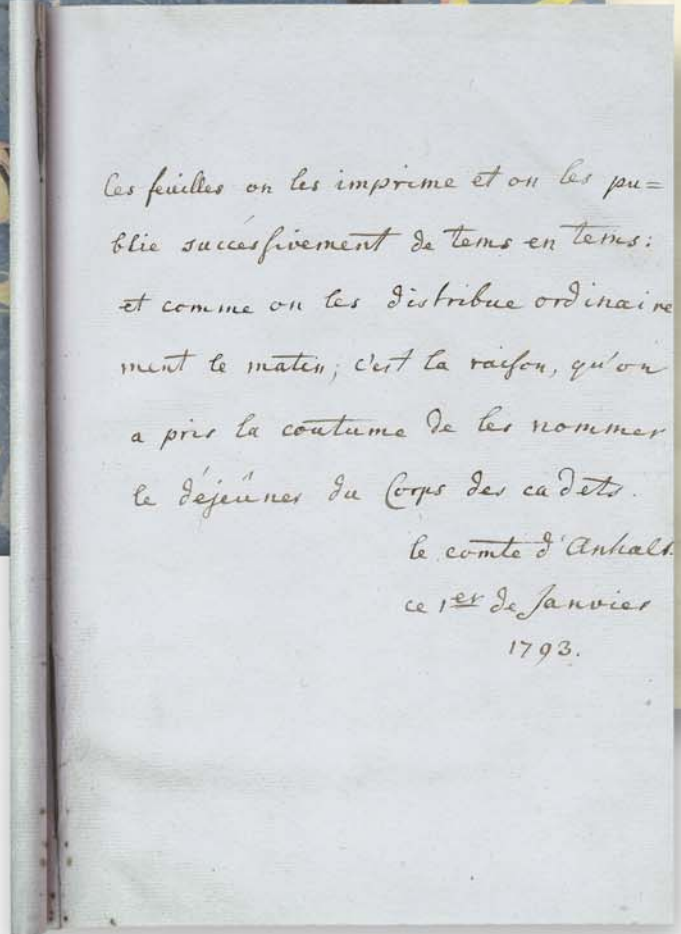 Ces feuilles on les imprime et on les pu=
blie successivement de tems en tems:
et comme on les distribue ordinaire
ment le matin; c'est la raison, qu'on
a pris la coutume de les nommer
le déjeûner du Corps des cadets.
le comte d'Anhalt.
ce 1er de Janvier
1793.